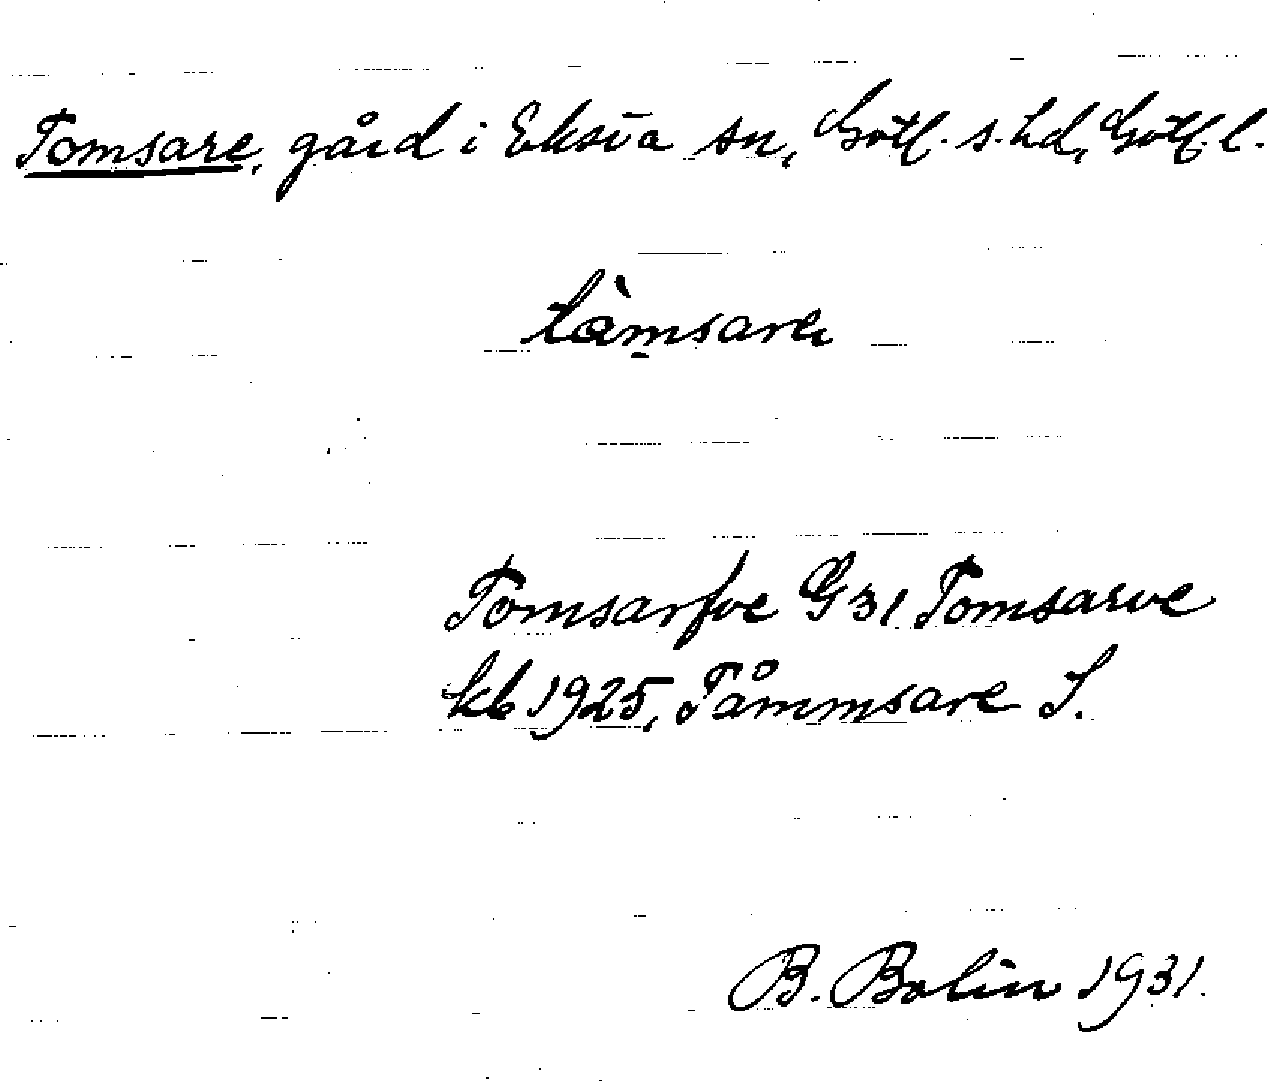 Tomsare, gård i Eksta sn, Gotl. s. hd, Gotl. l.
tàmsare
Tomsarfve G 31 Tomsarve
kb 1925, Tåmmsare S.
B. Bolin 1931.